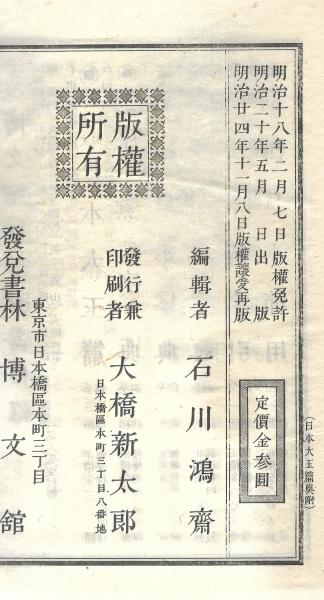 (日本大玉篇奥附)
明治十八年二月七日版權免許
明治二十年五月 日出版
明治廿四年十一月八日版權讓受再版
定價金参圓
版權所有
編輯者 石川鴻齋
發行兼印刷者 大橋新太郎
日本橋區本町三丁目八番地
東京市日本橋區本町三丁目
發兌書林 博文舘